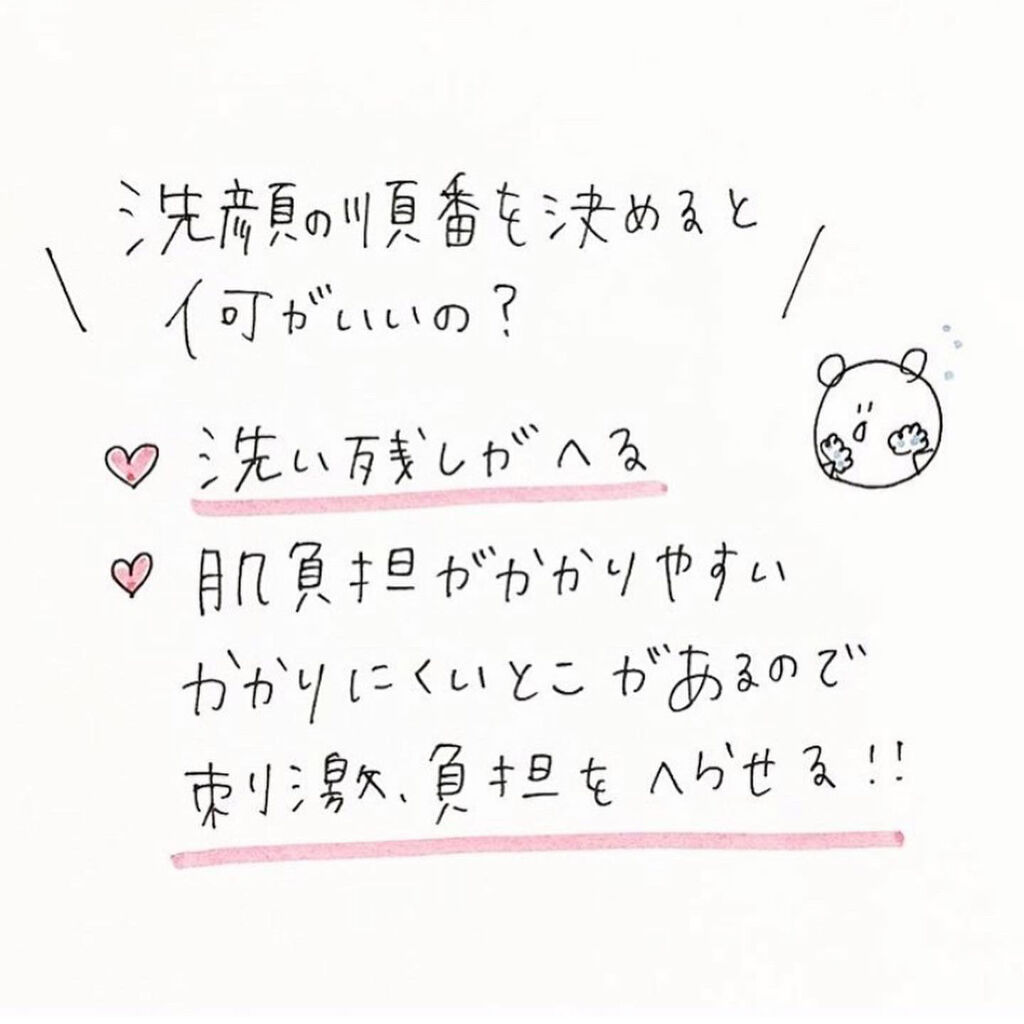 洗顔の順番を決めると
何がいいの？
洗い残しがへる
肌負担がかかりやすい
かかりにくいとこがあるので
刺激、負担をへらせる!!